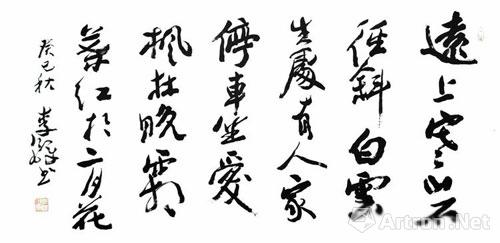 遠上寒山石
径斜白雲
生處有人家
停車坐愛
楓林晚霜
葉红於二月花
癸巳秋
李
书
Artron.Net